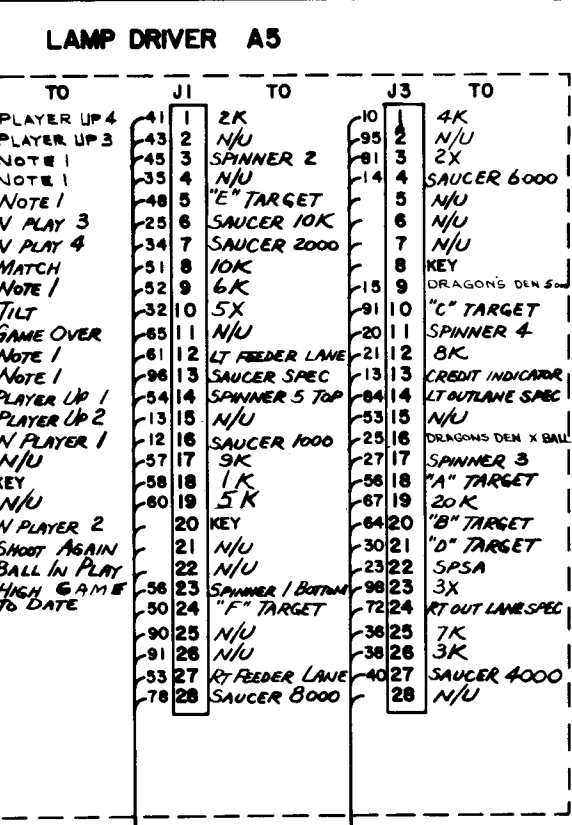 LAMP DRIVER A5
TO J1 TO J3 TO
PLAYER UP 4 41 1 2K 10 1 4K
PLAYER UP 3 43 2 N/U 95 2 N/U
NOTE 1 45 3 SPINNER 2 81 3 2X
NOTE 1 35 4 N/U 14 4 SAUCER 6000
NOTE 1 48 5 "E" TARGET 5 N/U
N PLAY 3 25 6 SAUCER 10K 6 N/U
N PLAY 4 34 7 SAUCER 2000 7 N/U
MATCH 51 8 10K 8 KEY
NOTE 1 52 9 6K 15 9 DRAGON'S DEN
TILT 32 10 5X 91 10 "C" TARGET
GAME OVER 65 11 N/U 20 11 SPINNER 4
NOTE 1 61 12 LT FEEDER LANE 21 12 8K
NOTE 1 96 13 SAUCER SPEC 13 13 CREDIT INDICATOR
PLAYER UP 1 54 14 SPINNER 5 TOP 84 14 LT OUTLANE SPEC
PLAYER UP 2 13 15 N/U 53 15 N/U
N PLAYER 1 12 16 SAUCER 1000 25 16 DRAGONS DEN X BALL
N/U 57 17 9K 27 17 SPINNER 3
KEY 58 18 1K 56 18 "A" TARGET
N/U 60 19 5K 67 19 20K
N PLAYER 2 20 KEY 64 20 "B" TARGET
SHOOT AGAIN 21 N/U 30 21 "D" TARGET
BALL IN PLAY 22 N/U 23 22 SPSA
HIGH GAME 56 23 SPINNER 1 BOTTOM 98 23 3X
TO DATE 50 24 "F" TARGET 72 24 RT OUT LANE SPEC
90 25 N/U 36 25 7K
91 26 N/U 38 26 3K
53 27 RT FEEDER LANE 40 27 SAUCER 4000
78 28 SAUCER 8000 28 N/U